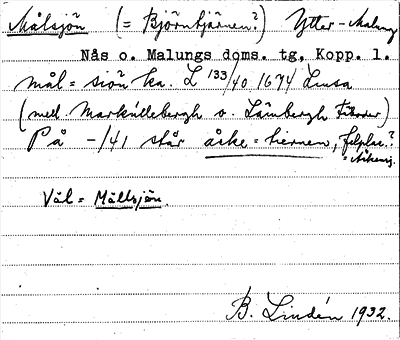 Målsjön (= Björntjärnen?) Ytter-Malung
Nås o. Malungs doms. tg, Kopp. l.
mål = siön ka. L 133/40 1674
(med Markullebergh o. Lämbergh
På -/41 står åske = tiernen, felplac.?
Väl = Mållsjön.
B. Lindén 1932.